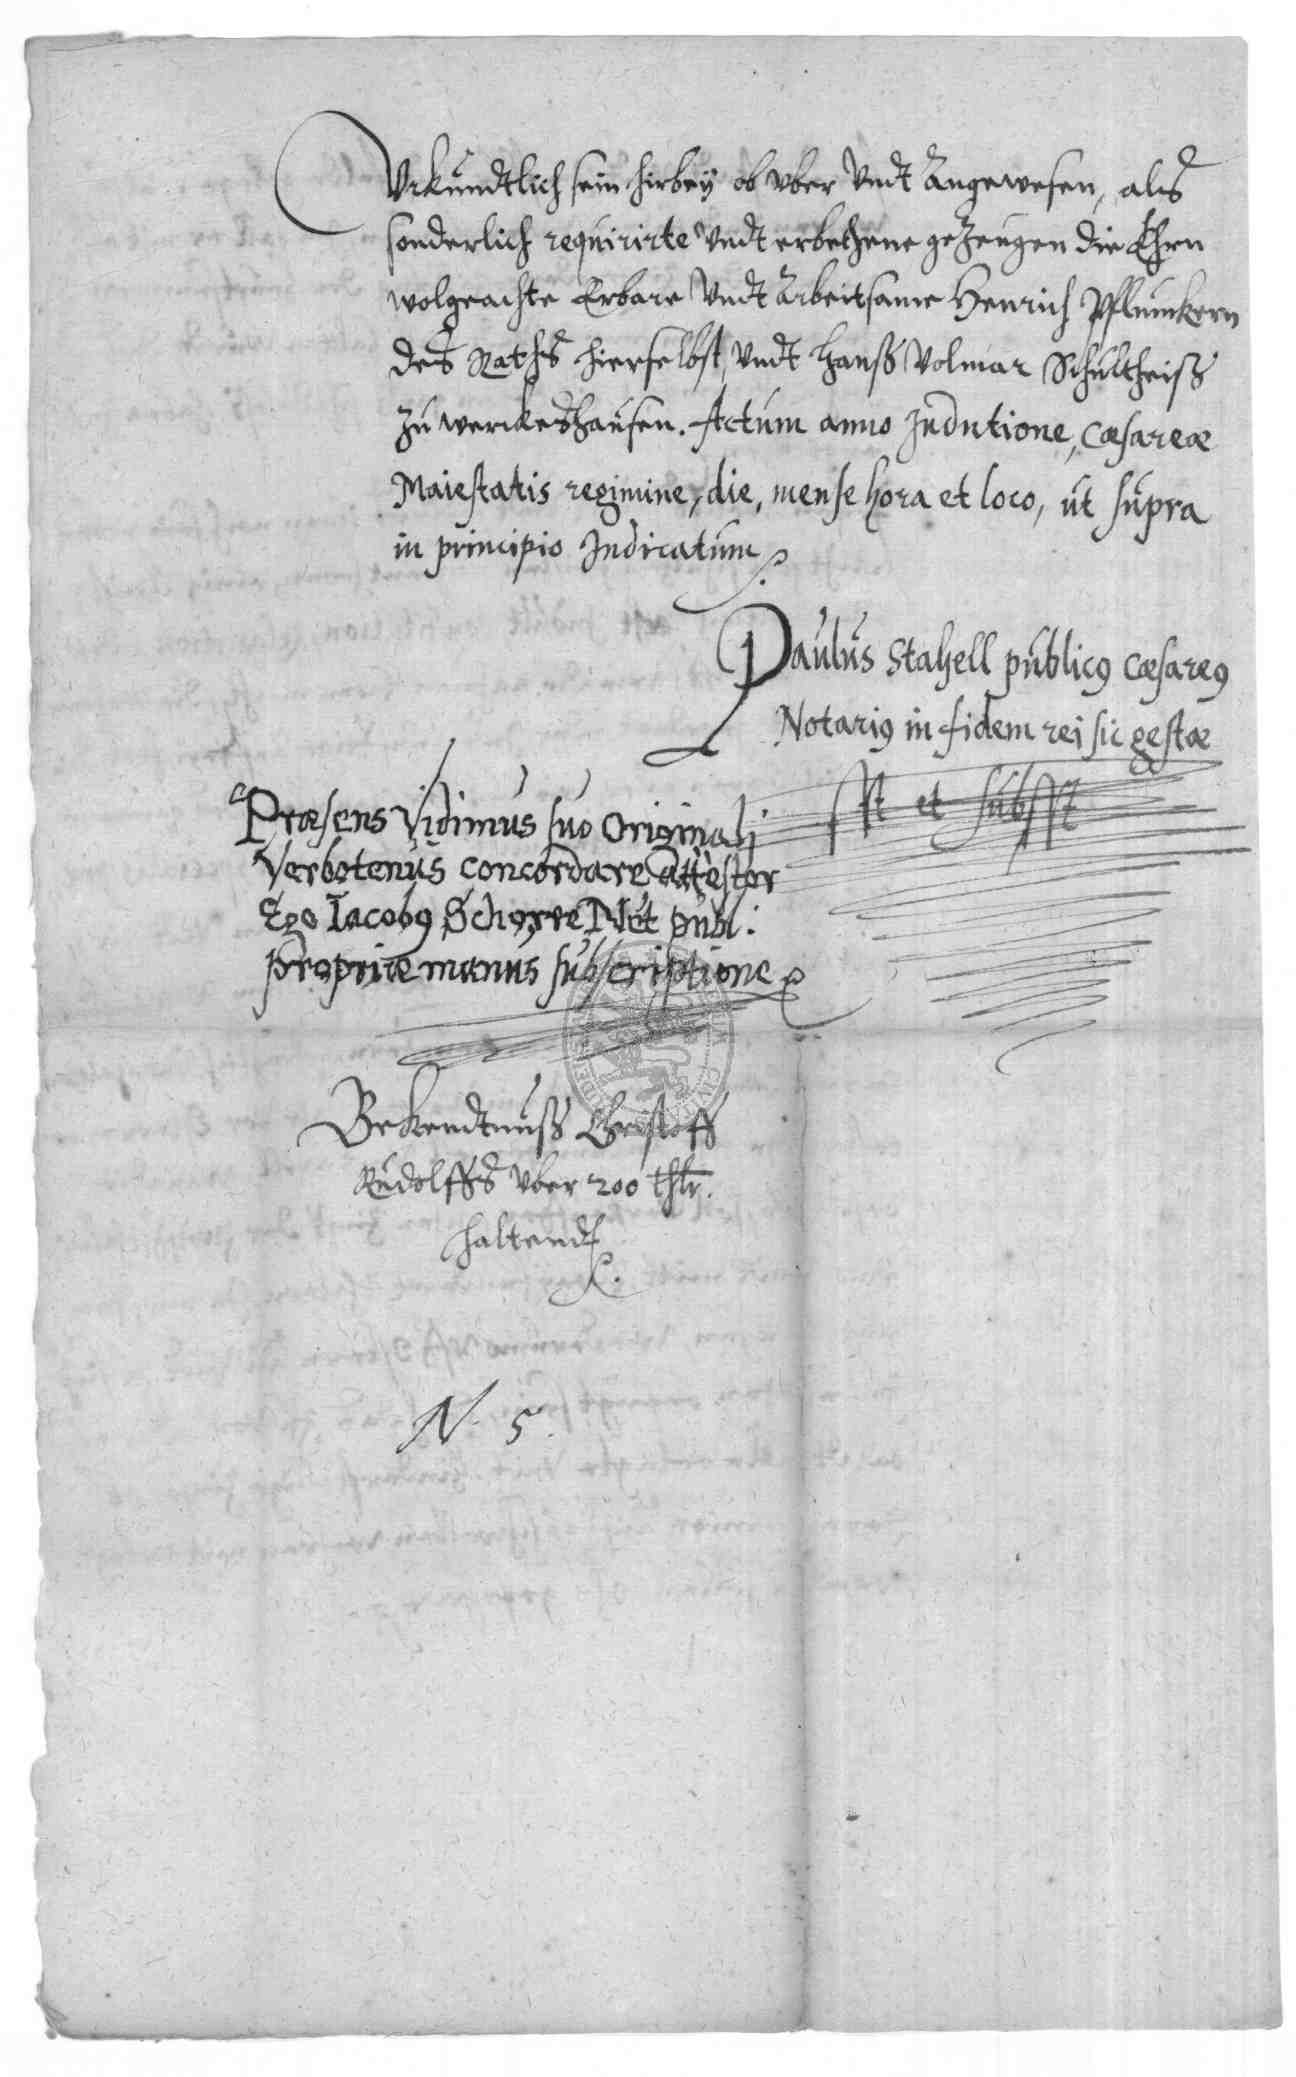 Vrkundtlich sein hirbey ob vber Vndt Angewesen, als
sonderlich requirirte Vndt erbethene geZeugen die Ehrn
wolgeachte Erbare Vndt Arbeitsame Henrich Pflunkern
des Raths hierselbst, Vndt Hanß Volmar Schultheiß
Zu werckeshausen. Actum anno Indictione, Cæsareæ
Maiestatis regimine, die, mense hora et loco, ut supra
in principio Indicatum
Paulus Stahell publicꝯ Cæsareꝯ
Notariꝯ in fidem rei sic gestæ
sst et subsst
Præsens Vidimus suo Originali
Verbotenus concordare attestor
Ego Iacobꝯ Not publ:
propriæ manus subscriptione
Bekendtnuß Christoff
Rudolffs vber 200 thlr.
haltendt
N. 5.